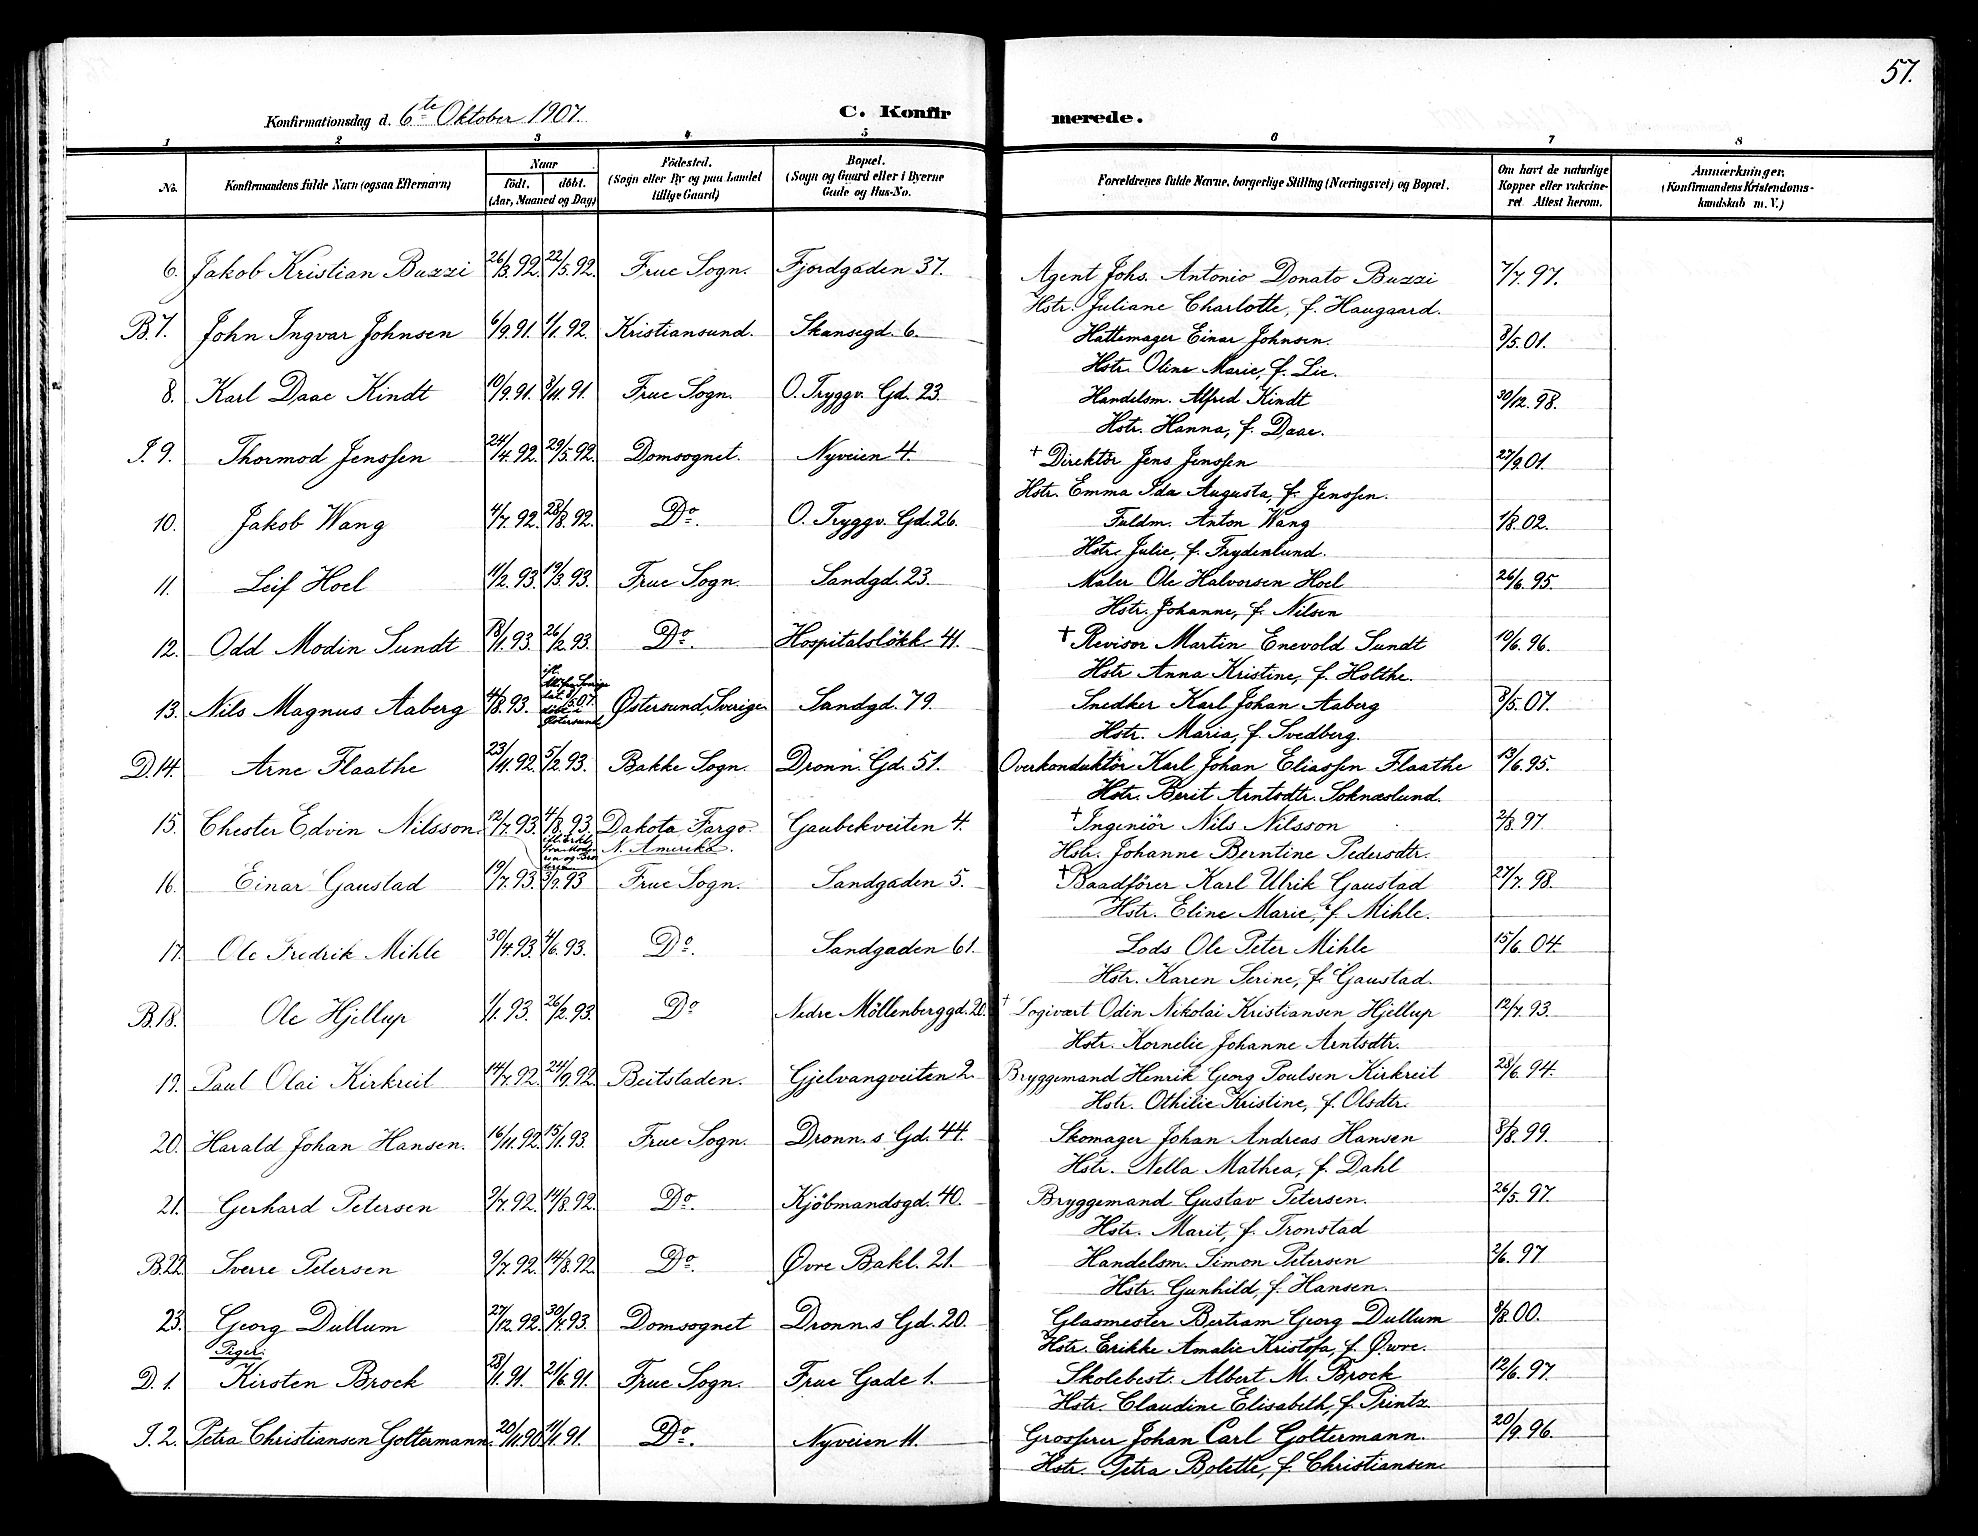 57.
Konfirmationsdag d. 6te Oktober 1907. C. Konfirmerede.
1 2 3 4 5 6 7 8
No. Konfirmandens fulde Navn (ogsaa Efternavn) Naar födt. döbt. (Aar, Maaned og Dag) Födested. (Sogn eller By og paa Landet tillige Gaard) Bopæl. (Sogn og Gaard eller i Byerne Gade og Hus-No. Forældrenes fulde Navne, borgerlige Stilling (Næringsvei) og Bopæl. Om havt de naturlige Kopper eller vakcineret. Attest herom. Anmærkninger, (Konfirmandens Kristendomskundskab m. V.)
6. Jakob Kristian Buzzi 26/3.92. 22/5.92. Frue Sogn. Fjordgaden 37. Agent Johs. Antonio Donato Buzzi 7/7.97.
Hstr. Juliane Charlotte, f. Haugaard.
B.7. John Ingvar Johnsen 6/9.91. 1/1.92. Kristiansund. Skansegd. 6. Hattemager Einar Johnsen. 3/5.01.
Hstr. Oline Marie, f. Lie.
8. Karl Daae Kindt 10/9.91. 3/11.91. Frue Sogn. O. Tryggv. Gd. 23. Handelsm. Alfred Kindt 30/12.98.
Hstr. Hanna, f. Daae.
I. 9. Thormod Jenssen 24/4.92. 29/5.92. Domsognet. Nyveien 4. † Direktör Jens Jenssen 27/9.01.
Hstr. Emma Ida Augusta, f. Jenssen.
10. Jakob Wang 4/7.92. 28/8.92. Do. O. Tryggv. Gd. 26. Fuldm. Anton Wang 1/8.02.
Hstr. Julie, f. Frydenlund.
11. Leif Hoel 11/2.93. 19/3.93. Frue Sogn. Sandgd. 23. Maler Ole Halvorsen Hoel 26/6.95.
Hstr. Johanne, f. Nilsen
12. Odd Modin Sundt 18/1.93. 26/2.93. Do. Hospitalslökk. 41. † Revisor Martin Enevold Sundt 10/6.96.
Hstr. Anna Kristine, f. Holthe.
13. Nils Magnus Aaberg 4/8.93. Østersund, Sverige Sandgd. 79. Snedker Karl Johan Aaberg 8/5.07.
Hstr. Maria, f. Svedberg.
D.14. Arne Flaathe 23/11.92. 5/2.93. Bakke Sogn. Dronn. Gd. 51. Overkonduktör Karl Johan Eliassen Flaathe 13/6.95.
Hstr. Berit Arntsdtr. Soknæslund.
15. Chester Edvin Nilsson. 12/7.93. 4/8.93. Dakota Fargo. N. Amerika. Gaubekveiten 4. † Ingeniör Nils Nilsson 2/8.97.
Hstr. Johanne Berntine Pedersdtr.
16. Einar Gaustad 19/7.93. 3/9.93 Frue Sogn. Sandgaden 5. † Baadförer Karl Ulrik Gaustad 27/7.98.
Hstr. Eline Marie, f. Mihle.
17. Ole Fredrik Mihle 30/4.93. 4/6.93. Do. Sandgaden 61. Lods Ole Peter Mihle 15/6.04.
Hstr. Karen Serine, f. Gaustad.
B.18. Ole Hjellup 1/1.93. 26/2.93. Do Nedre Möllenberggd. 20. † Logivært Odin Nikolai Kristiansen Hjellup 12/7.93.
Hstr. Kornelie Johanne Arntsdtr.
19. Paul Olai Kirkreit 14/7.92. 24/9.92. Beitstaden. Gjelvangveiten 2. Bryggemand Henrik Georg Poulsen Kirkreit 28/6.94.
Hstr. Othilie Kristine, f. Olsdtr.
20. Harald Johan Hansen. 16/11.92. 15/1.93. Frue Sogn. Dronn.s Gd. 44. Skomager Johan Andreas Hansen 8/8.99.
Hstr. Nella Mathea, f. Dahl
21. Gerhard Petersen 9/7.92. 14/8.92. Do. Kjöbmandsgd. 40. Bryggemand Gustav Petersen. 26/5.97.
Hstr. Marit, f. Tronstad
B.22. Sverre Petersen 9/7.92. 14/8.92. Do. Øvre Bakl. 21. Handelsm. Simon Petersen 2/6.97
Hstr. Gunhild, f. Hansen.
23. Georg Dullum 27/12.92. 30/4.93. Domsognet Dronn.s Gd. 20. Glasmester Bertram Georg Dullum 9/8.00.
Hstr. Erikke Amalie Kristofa, f. Øwre.
Piger.
D. 1. Kirsten Brock 28/1.91. 21/6.91. Frue Sogn. Frue Gade 1. Skolebest. Albert M. Brock 12/6.97.
Hstr. Claudine Elisabeth, f. Printz
I. 2. Petra Christiansen Goltermann. 20/11.90. 11/1.91. Do. Nyveien 11. Grosserer Johan Carl Goltermann. 20/9.96.
Hstr. Petra Bolette, f. Christiansen.